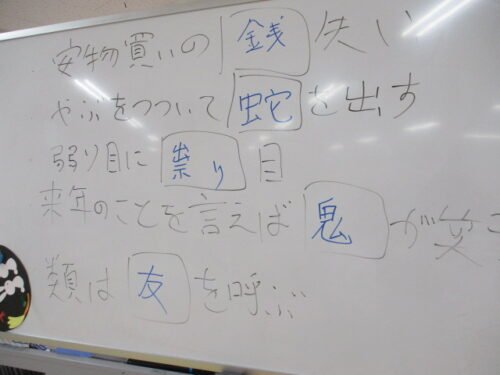 安物買いの銭失い
やぶをつついて蛇を出す
弱り目に祟り目
来年のことを言えば鬼が笑う
類は友を呼ぶ